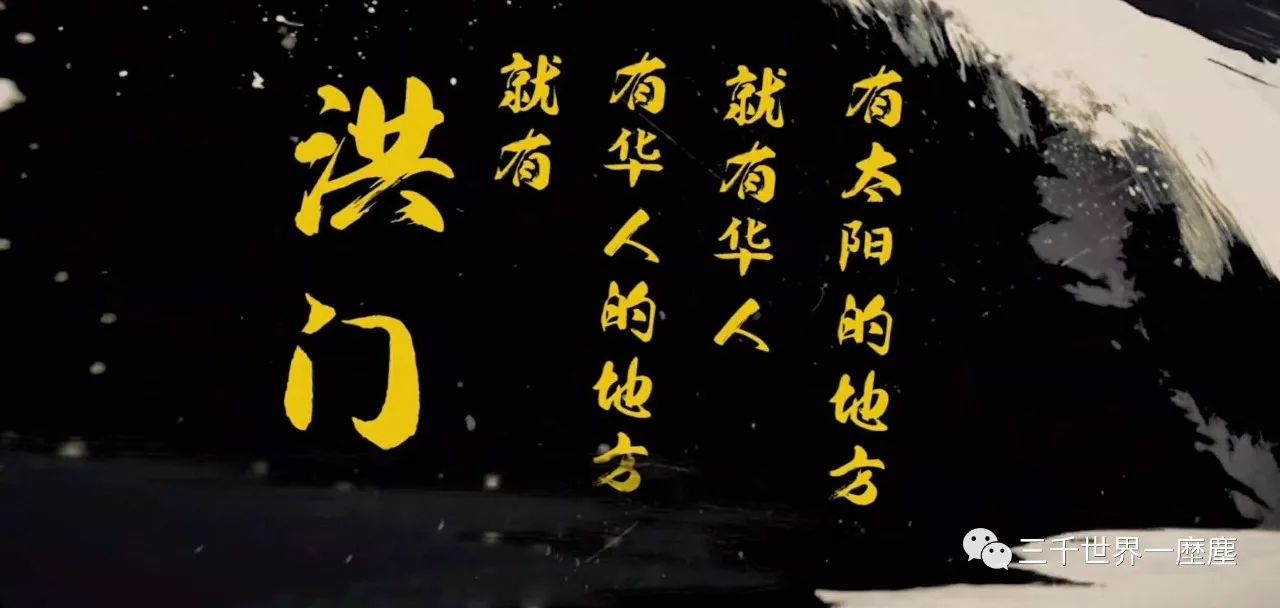 有太阳的地方
就有华人
有华人的地方
就有
洪门
三千世界一座塵